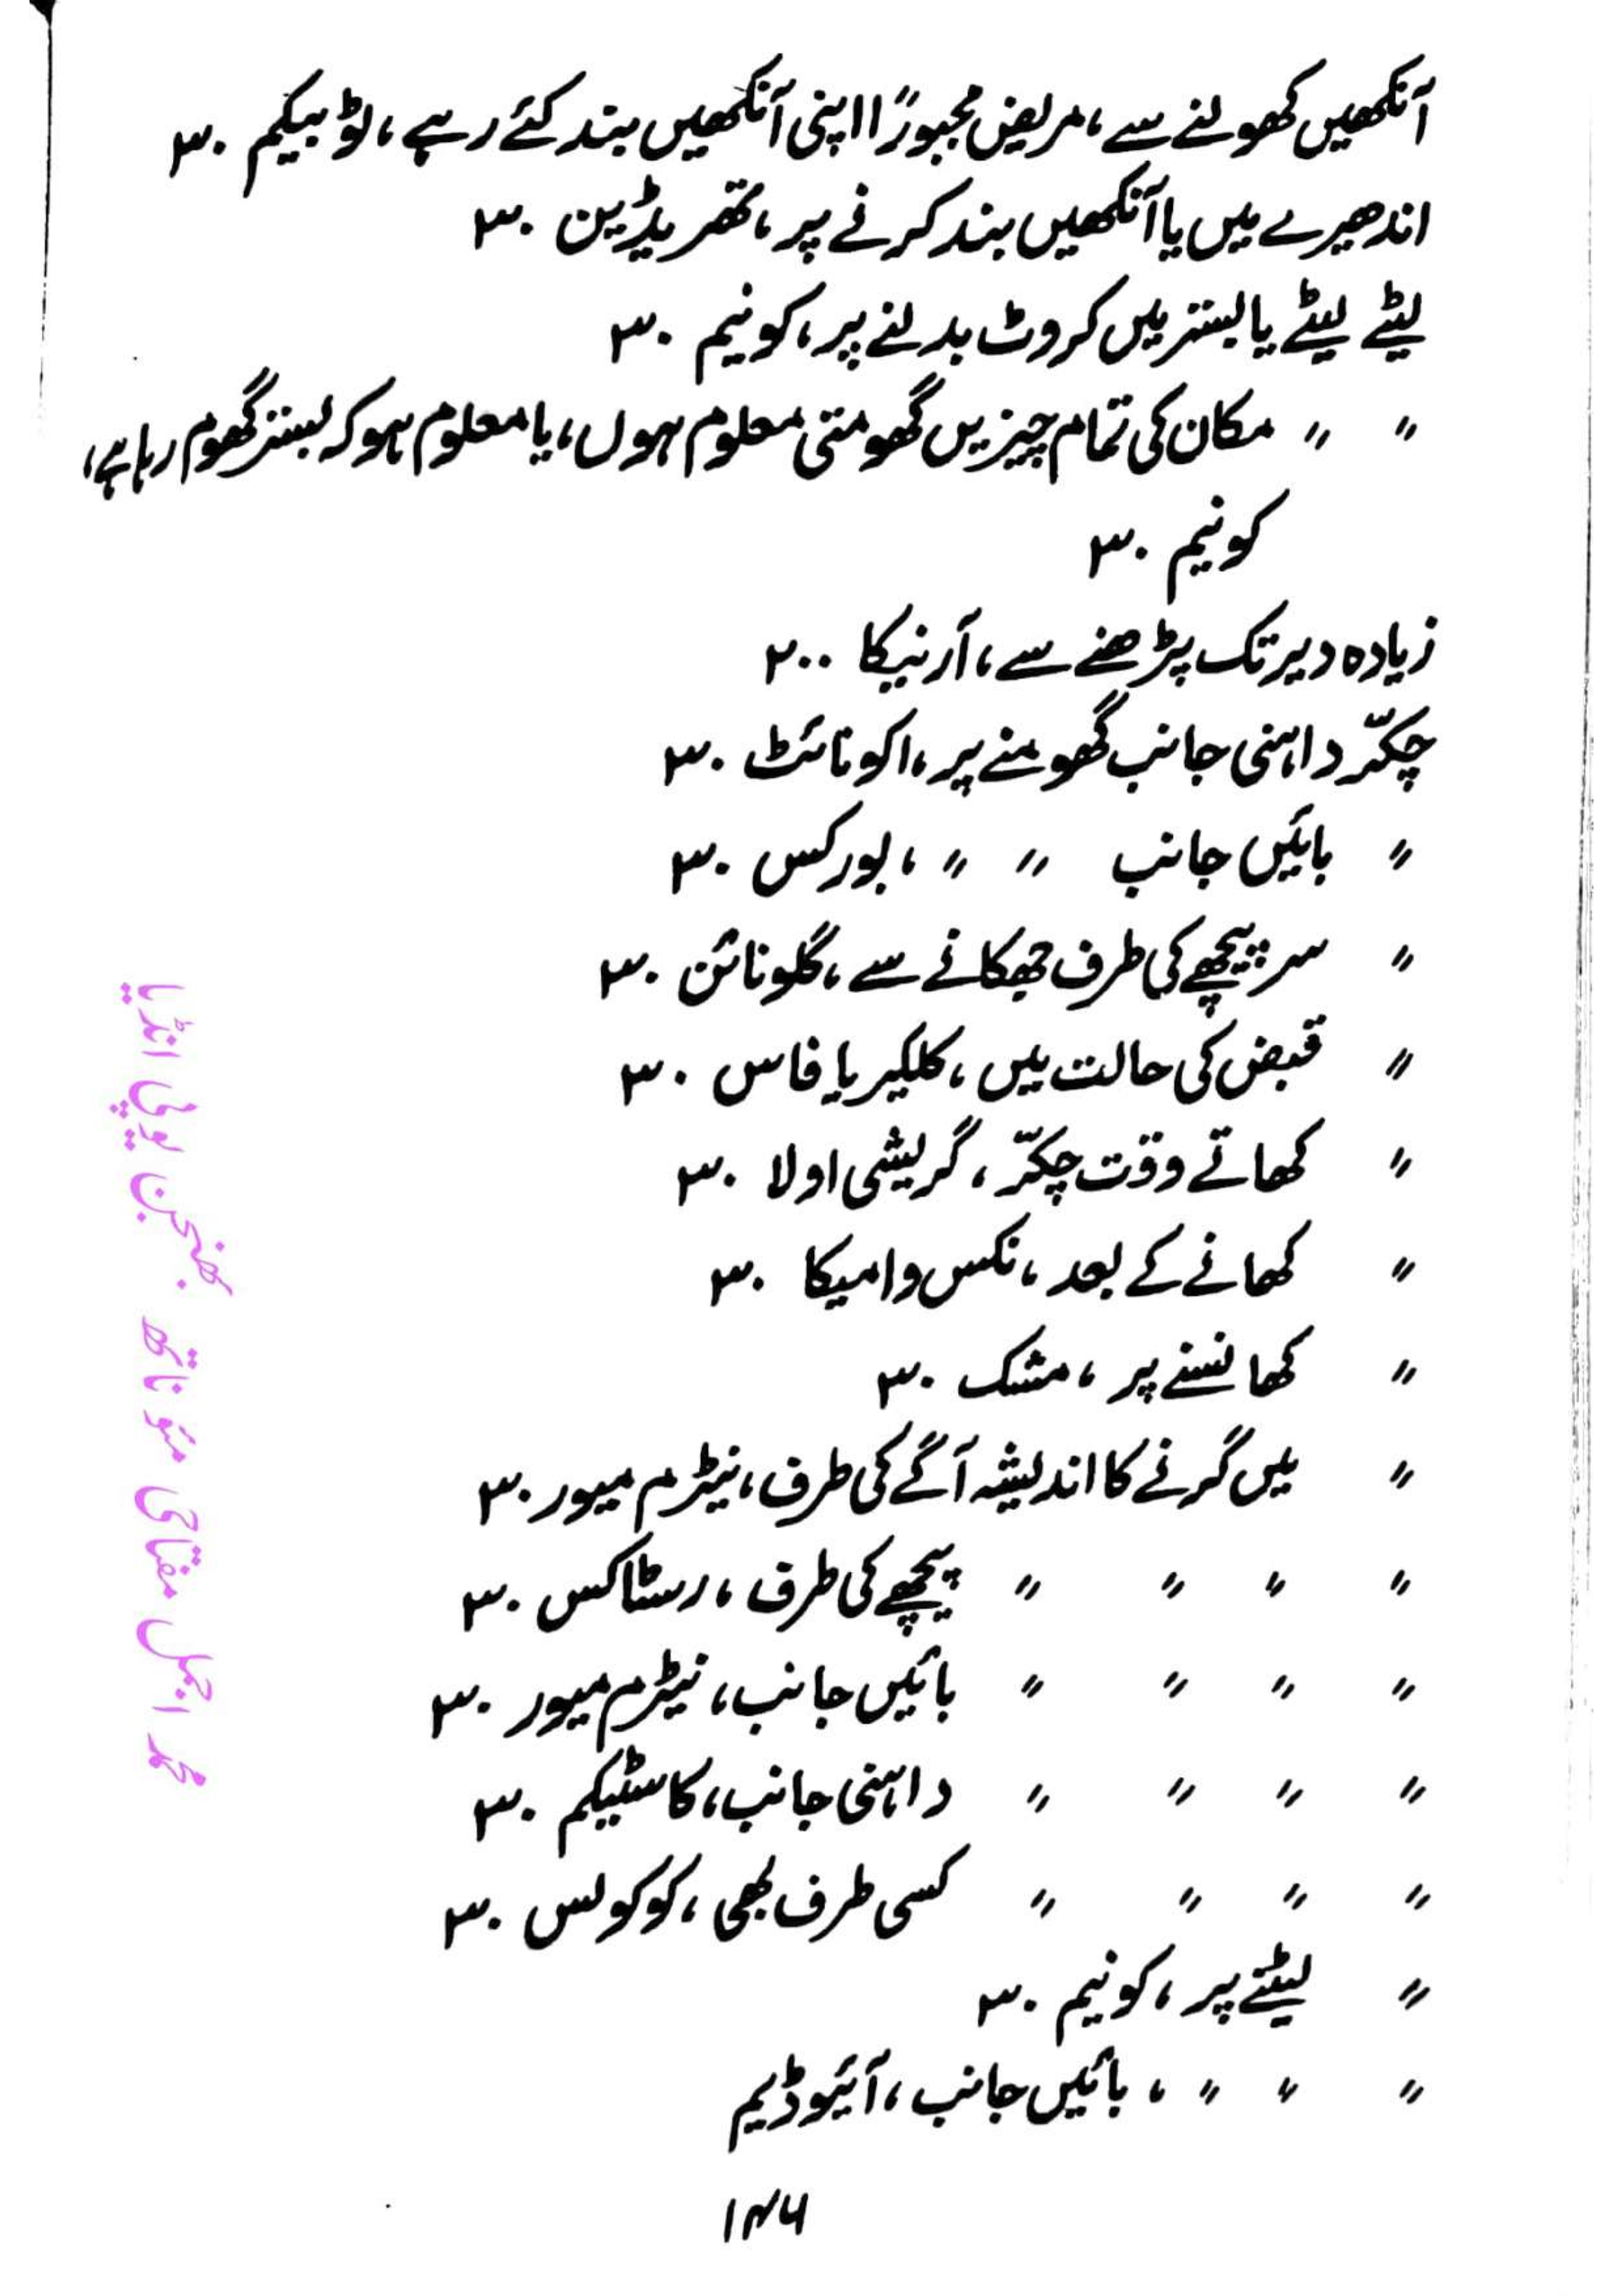 آنکھیں کھولنے سے، مریض مجبورًا اپنی آنکھیں بند کئے رہے، ٹوبیکم ۳۰
اندھیرے میں یا آنکھیں بند کرنے پر، تھریڈین ۳۰
لیٹے لیٹے یا بستر میں کروٹ بدلنے پر، کونیم ۳۰
〃 〃 مکان کی تمام چیزیں گھومتی معلوم ہوں، یا معلوم ہو کہ بستر گھوم رہا ہے،
کونیم ۳۰
زیادہ دیر تک پڑھنے سے، آرنیکا ۲۰۰
چکّر داہنی جانب گھومنے پر، اکونائٹ ۳۰
〃 بائیں جانب 〃 〃، بورکس ۳۰
〃 سر پیچھے کی طرف جھکانے سے، گلونائن ۳۰
〃 قبض کی حالت میں، کلکیریا فاس ۳۰
〃 کھاتے وقت چکّر، گریشی اولا ۳۰
〃 کھانے کے بعد، نکس وامیکا ۳۰
〃 کھانسنے پر، مشک ۳۰
〃 میں گرنے کا اندیشہ آگے کی طرف، نیٹرم میور ۳۰
〃 〃 〃 〃 پیچھے کی طرف، رسٹاکس ۳۰
〃 〃 〃 〃 بائیں جانب، نیٹرم میور ۳۰
〃 〃 〃 〃 داہنی جانب، کاسٹیکم ۳۰
〃 〃 〃 〃 کسی طرف بھی، کوکولس ۳۰
〃 لیٹنے پر، کونیم ۳۰
〃 〃 〃، بائیں جانب، آئیوڈیم
۱۴۶
محمد اجمل مفتاحی مئو ناتھ بھنجن یوپی انڈیا